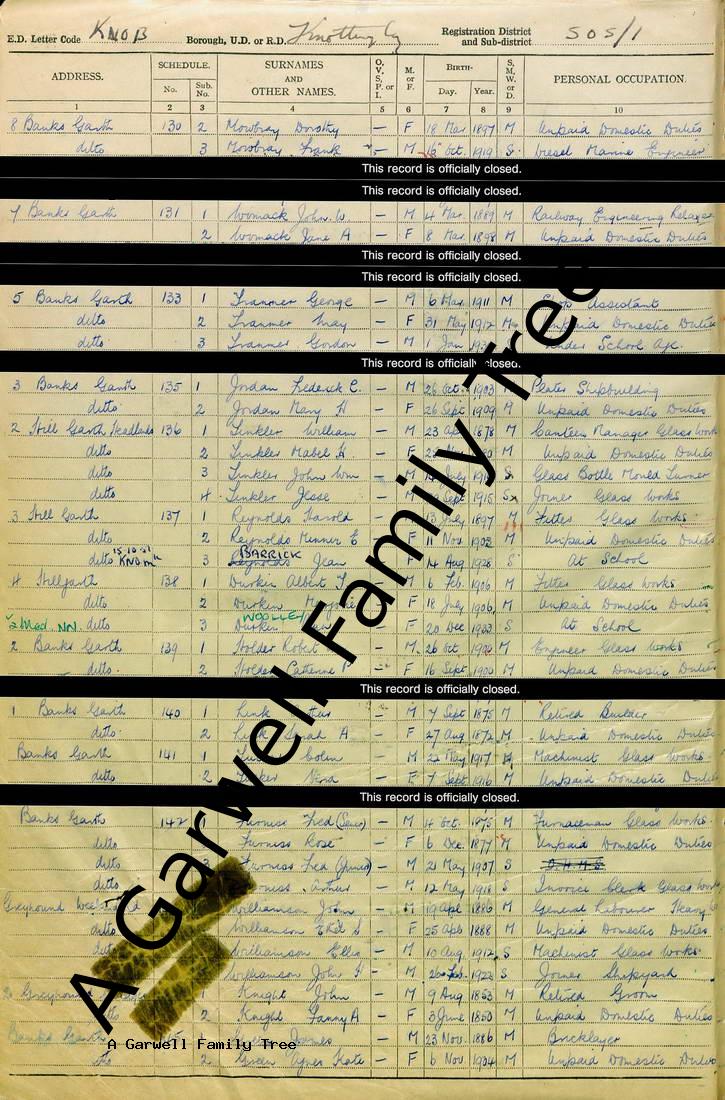 E.D. Letter Code KNOB Borough, U.D. or R.D. Knottingley Registration District and Sub-district 505/1
ADDRESS. SCHEDULE. No. Sub. No. SURNAMES AND OTHER NAMES. O. V. S. P. or I. M. or F. BIRTH— Day. Year. S. M. W. or D. PERSONAL OCCUPATION.
1 2 3 4 5 6 7 8 9 10
8 Banks Garth 130 2 Mowbray Dorothy — F 18 Mar 1897 M Unpaid Domestic Duties
ditto 3 Mowbray Frank — M 16 Oct. 1919 S. Diesel Marine Engineer
This record is officially closed.
This record is officially closed.
7 Banks Garth 131 1 Womack John W. — M 4 Mar. 1889 M Railway Engineering
2 Womack Jane A — F 8 Mar. 1898 M Unpaid Domestic Duties
This record is officially closed.
This record is officially closed.
5 Banks Garth 133 1 Tranmer George — M 6 Mar. 1911 M Shop Assistant
ditto 2 Tranmer May — F 31 May 1912 M Unpaid Domestic Duties
ditto 3 Tranmer Gordon — M 1 Jan Under School Age.
This record is officially closed.
3 Banks Garth 135 1 Jordan Frederick C. — M 26 Oct. 1903 Plater Shipbuilding
ditto 2 Jordan Mary H — F 26 Sept 1909 M Unpaid Domestic Duties
2 Hill Garth Headlands 136 1 Tinkler William — M 23 Apl 1878 M Canteen Manager Glass Works
ditto 2 Tinkler Mabel H. — F M Unpaid Domestic Duties
ditto 3 Tinkler John Wm — M July S Glass Bottle Mould Turner
ditto 4 Tinkler Jesse — M Sept 1915 S Joiner Glass Works
3 Hill Garth 137 1 Reynolds Harold — M 13 July 1897 M Fitter Glass Works
ditto 2 Reynolds Minnie E — F 11 Nov. 1902 M Unpaid Domestic Duties
ditto 15.10.51 KNO.m 3 BARRICK Reynolds Jean — F 14 Aug 1928 S At School
4 Hillgarth 138 1 Durkin Albert — M 6 Feb. 1906 M Fitter Glass Works
ditto 2 Durkin — F 18 July 1906 M Unpaid Domestic Duties
ditto 3 WOOLLEY Durkin — F 20 Dec S At School
2 Banks Garth 139 1 Holder Robert — M 26 Oct M Engineer Glass Works
ditto 2 Holder Catherine P — F 16 Sept. 1900 M Unpaid Domestic Duties
This record is officially closed.
1 Banks Garth 140 1 — M 7 Sept 1875 M Retired Builder
ditto 2 Sarah A — F 27 Aug 1872 M Unpaid Domestic Duties
Banks Garth 141 1 Colin — M 22 May 1917 M Machinist Glass Works
ditto 2 Vera — F 7 Sept 1916 M Unpaid Domestic Duties
This record is officially closed.
Banks Garth 142 Furniss Fred (Senr) — M 4 Oct. 1875 M Furnaceman Glass Works
ditto Furniss Rose — F 6 Dec. 1877 M Unpaid Domestic Duties
ditto 3 Furniss Fred (Junior) — M 21 May 1907 S O.H.M.S
ditto Furniss — M 12 May 1918 S Invoice Clerk Glass Works
Greyhound Williamson John — M 19 Apl 1886 M General Labourer Heavy
Williamson — F 25 Apl 1888 M Unpaid Domestic Duties
Williamson Ellis — M 10 Aug 1912 S Machinist Glass Works
Williamson John H — M 26 Feb. 1922 S Joiner Shipyard
Greyhound 1 Knight John — M 9 Aug 1853 M Retired Groom
2 Knight Fanny A — F 3 June 1850 M Unpaid Domestic Duties
Banks Garth 1 James — M 23 Nov. 1886 M Bricklayer
2 Green Agnes Kate — F 6 Nov 1904 M Unpaid Domestic Duties
A Garwell Family Tree
A Garwell Family Tree